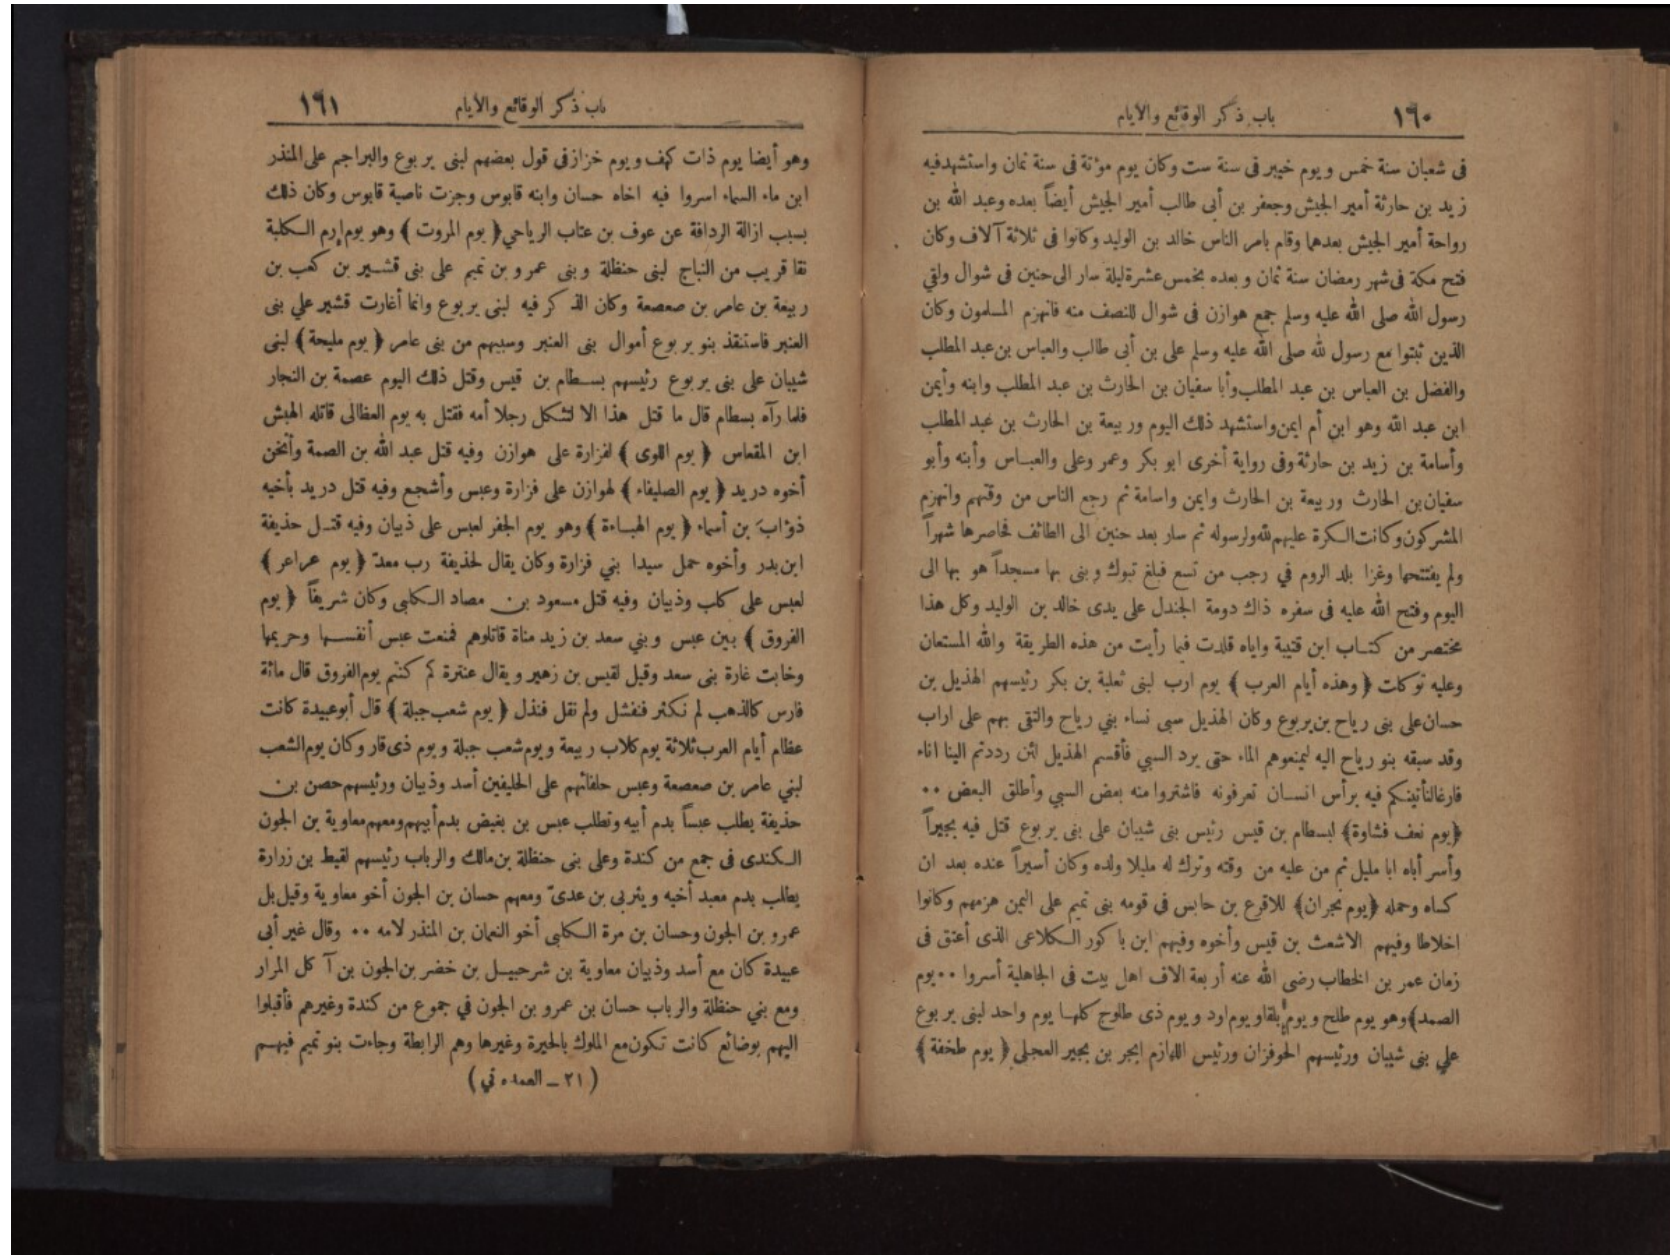 ١٦٠
باب ذكر الوقائع والأيام
فى شعبان سنة خمس ويوم خيبر فى سنة ست وكان يوم مؤتة فى سنة ثمان واستشهدفيه
زيد بن حارثة أمير الجيش وجعفر بن أبى طالب أمير الجيش أيضاً بعده وعبد الله بن
رواحة أمير الجيش بعدهما وقام بامر الناس خالد بن الوليد وكانوا فى ثلاثة آلاف وكان
فتح مكة فى شهر رمضان سنة ثمان وبعده بخمس عشرة ليلة سار الى حنين فى شوال ولقي
رسول الله صلى الله عليه وسلم جمع هوازن فى شوال للنصف منه فانهزم المسلمون وكان
الذين ثبتوا مع رسول لله صلى الله عليه وسلم على بن أبى طالب والعباس بن عبد المطلب
والفضل بن العباس بن عبد المطلب وأبا سفيان بن الحارث بن عبد المطلب وابنه وأيمن
ابن عبد الله وهو ابن أم ايمن واستشهد ذلك اليوم وربيعة بن الحارث بن عبد المطلب
وأسامة بن زيد بن حارثة وفى رواية أخرى ابو بكر وعمر وعلى والعباس وأبنه وأبو
سفيان بن الحارث وربيعة بن الحارث وايمن واسامة ثم رجع الناس من وقتهم وانهزم
المشركون وكانت الكرة عليهم لله ولرسوله ثم سار بعد حنين الى الطائف فحاصرها شهراً
ولم يفتتحها وغزا بلد الروم في رجب من تسع فبلغ تبوك وبنى بها مسجداً هو بها الى
اليوم وفتح الله عليه فى سفره ذاك دومة الجندل على يدى خالد بن الوليد وكل هذا
مختصر من كتاب ابن قتيبة واياه قلدت فيما رأيت من هذه الطريقة والله المستعان
وعليه توكلت ﴿ وهذه أيام العرب ﴾ يوم ارب لبنى ثعلبة بن بكر رئيسهم الهذيل بن
حسان على بنى رياح بن يربوع وكان الهذيل سبى نساء بني رياح والتقى بهم على اراب
وقد سبقه بنو رياح اليه ليمنعوهم الماء حتى يرد السبي فأقسم الهذيل لئن رددتم الينا اناء
فارغا لنأتينكم فيه برأس انسان تعرفونه فاشتروا منه بعض السبي وأطلق البعض ٠٠
﴿يوم نعف قشاوة﴾ لبسطام بن قيس رئيس بنى شيبان على بنى يربوع قتل فيه بجيراً
وأسر أباه ابا مليل ثم من عليه من وقته وترك له مليلا ولده وكان أسيراً عنده بعد ان
كساه وحمله ﴿يوم نجران﴾ للاقرع بن حابس في قومه بنى تميم على اليمن هزمهم وكانوا
اخلاطا وفيهم الاشعث بن قيس وأخوه وفيهم ابن باكور الكلاعى الذى أعتق فى
زمان عمر بن الخطاب رضى الله عنه أربعة الاف اهل بيت فى الجاهلية أسروا ٠٠ يوم
الصمد﴾ وهو يوم طلح ويوم بلقا ويوم اود ويوم ذى طلوح كلها يوم واحد لبنى يربوع
علي بنى شيبان ورئيسهم الحوفزان ورئيس اللهازم ابجر بن بجير العجلي ﴿ يوم طخفة ﴾
١٦١
باب ذكر الوقائع والأيام
وهو أيضا يوم ذات كهف ويوم خزاز في قول بعضهم لبنى يربوع والبراجم على المنذر
ابن ماء السماء اسروا فيه اخاه حسان وابنه قابوس وجزت ناصية قابوس وكان ذلك
بسبب ازالة الردافة عن عوف بن عتاب الرياحي ﴿ يوم المروت ﴾ وهو يوم ارم الكلبة
نقا قريب من النباج لبنى حنظلة وبنى عمرو بن تميم على بنى قشير بن كعب بن
ربيعة بن عامر بن صعصعة وكان الذكر فيه لبنى يربوع وانما أغارت قشير علي بنى
العنبر فاستنقذ بنو يربوع أموال بنى العنبر وسبيهم من بنى عامر ﴿ يوم مليحة ﴾ لبنى
شيبان على بنى يربوع رئيسهم بسطام بن قيس وقتل ذلك اليوم عصمة بن النجار
فلما رآه بسطام قال ما قتل هذا الا لتثكل رجلا أمه فقتل به يوم العظالى قاتله الهبش
ابن المقعاس ﴿ يوم اللوى ﴾ لفزارة على هوازن وفيه قتل عبد الله بن الصمة وأثخن
أخوه دريد ﴿ يوم الصليفاء ﴾ لهوازن على فزارة وعبس وأشجع وفيه قتل دريد بأخيه
ذؤاب بن أسماء ﴿ يوم الهباءة ﴾ وهو يوم الجفر لعبس على ذبيان وفيه قتل حذيفة
ابن بدر وأخوه حمل سيدا بني فزارة وكان يقال لحذيفة رب معدّ ﴿ يوم عراعر ﴾
لعبس على كلب وذبيان وفيه قتل مسعود بن مصاد الكلبى وكان شريفاً ﴿ يوم
الفروق ﴾ بين عبس وبني سعد بن زيد مناة قاتلوهم فمنعت عبس أنفسها وحريمها
وخابت غارة بنى سعد وقيل لقيس بن زهير ويقال عنترة كم كنتم يوم الفروق قال مائة
فارس كالذهب لم نكثر فنفشل ولم نقل فنذل ﴿ يوم شعب جبلة ﴾ قال أبو عبيدة كانت
عظام أيام العرب ثلاثة يوم كلاب ربيعة ويوم شعب جبلة ويوم ذى قار وكان يوم الشعب
لبني عامر بن صعصعة وعبس حلفائهم على الحليفين أسد وذبيان ورئيسهم حصن بن
حذيفة يطلب عبساً بدم أبيه وتطلب عبس بن بغيض بدم أبيهم ومعهم معاوية بن الجون
الكندى فى جمع من كندة وعلى بنى حنظلة بن مالك والرباب رئيسهم لقيط بن زرارة
يطلب بدم معبد أخيه ويثربى بن عدىّ ومعهم حسان بن الجون أخو معاوية وقيل بل
عمرو بن الجون وحسان بن مرة الكلبى أخو النعمان بن المنذر لامه ٠٠ وقال غير أبى
عبيدة كان مع أسد وذبيان معاوية بن شرحبيل بن خضر بن الجون بن آكل المرار
ومع بني حنظلة والرباب حسان بن عمرو بن الجون في جموع من كندة وغيرهم فأقبلوا
اليهم بوضائع كانت تكون مع الملوك بالحيرة وغيرها وهم الرابطة وجاءت بنو تميم فيهم
( ٢١ ـ العمده ني )